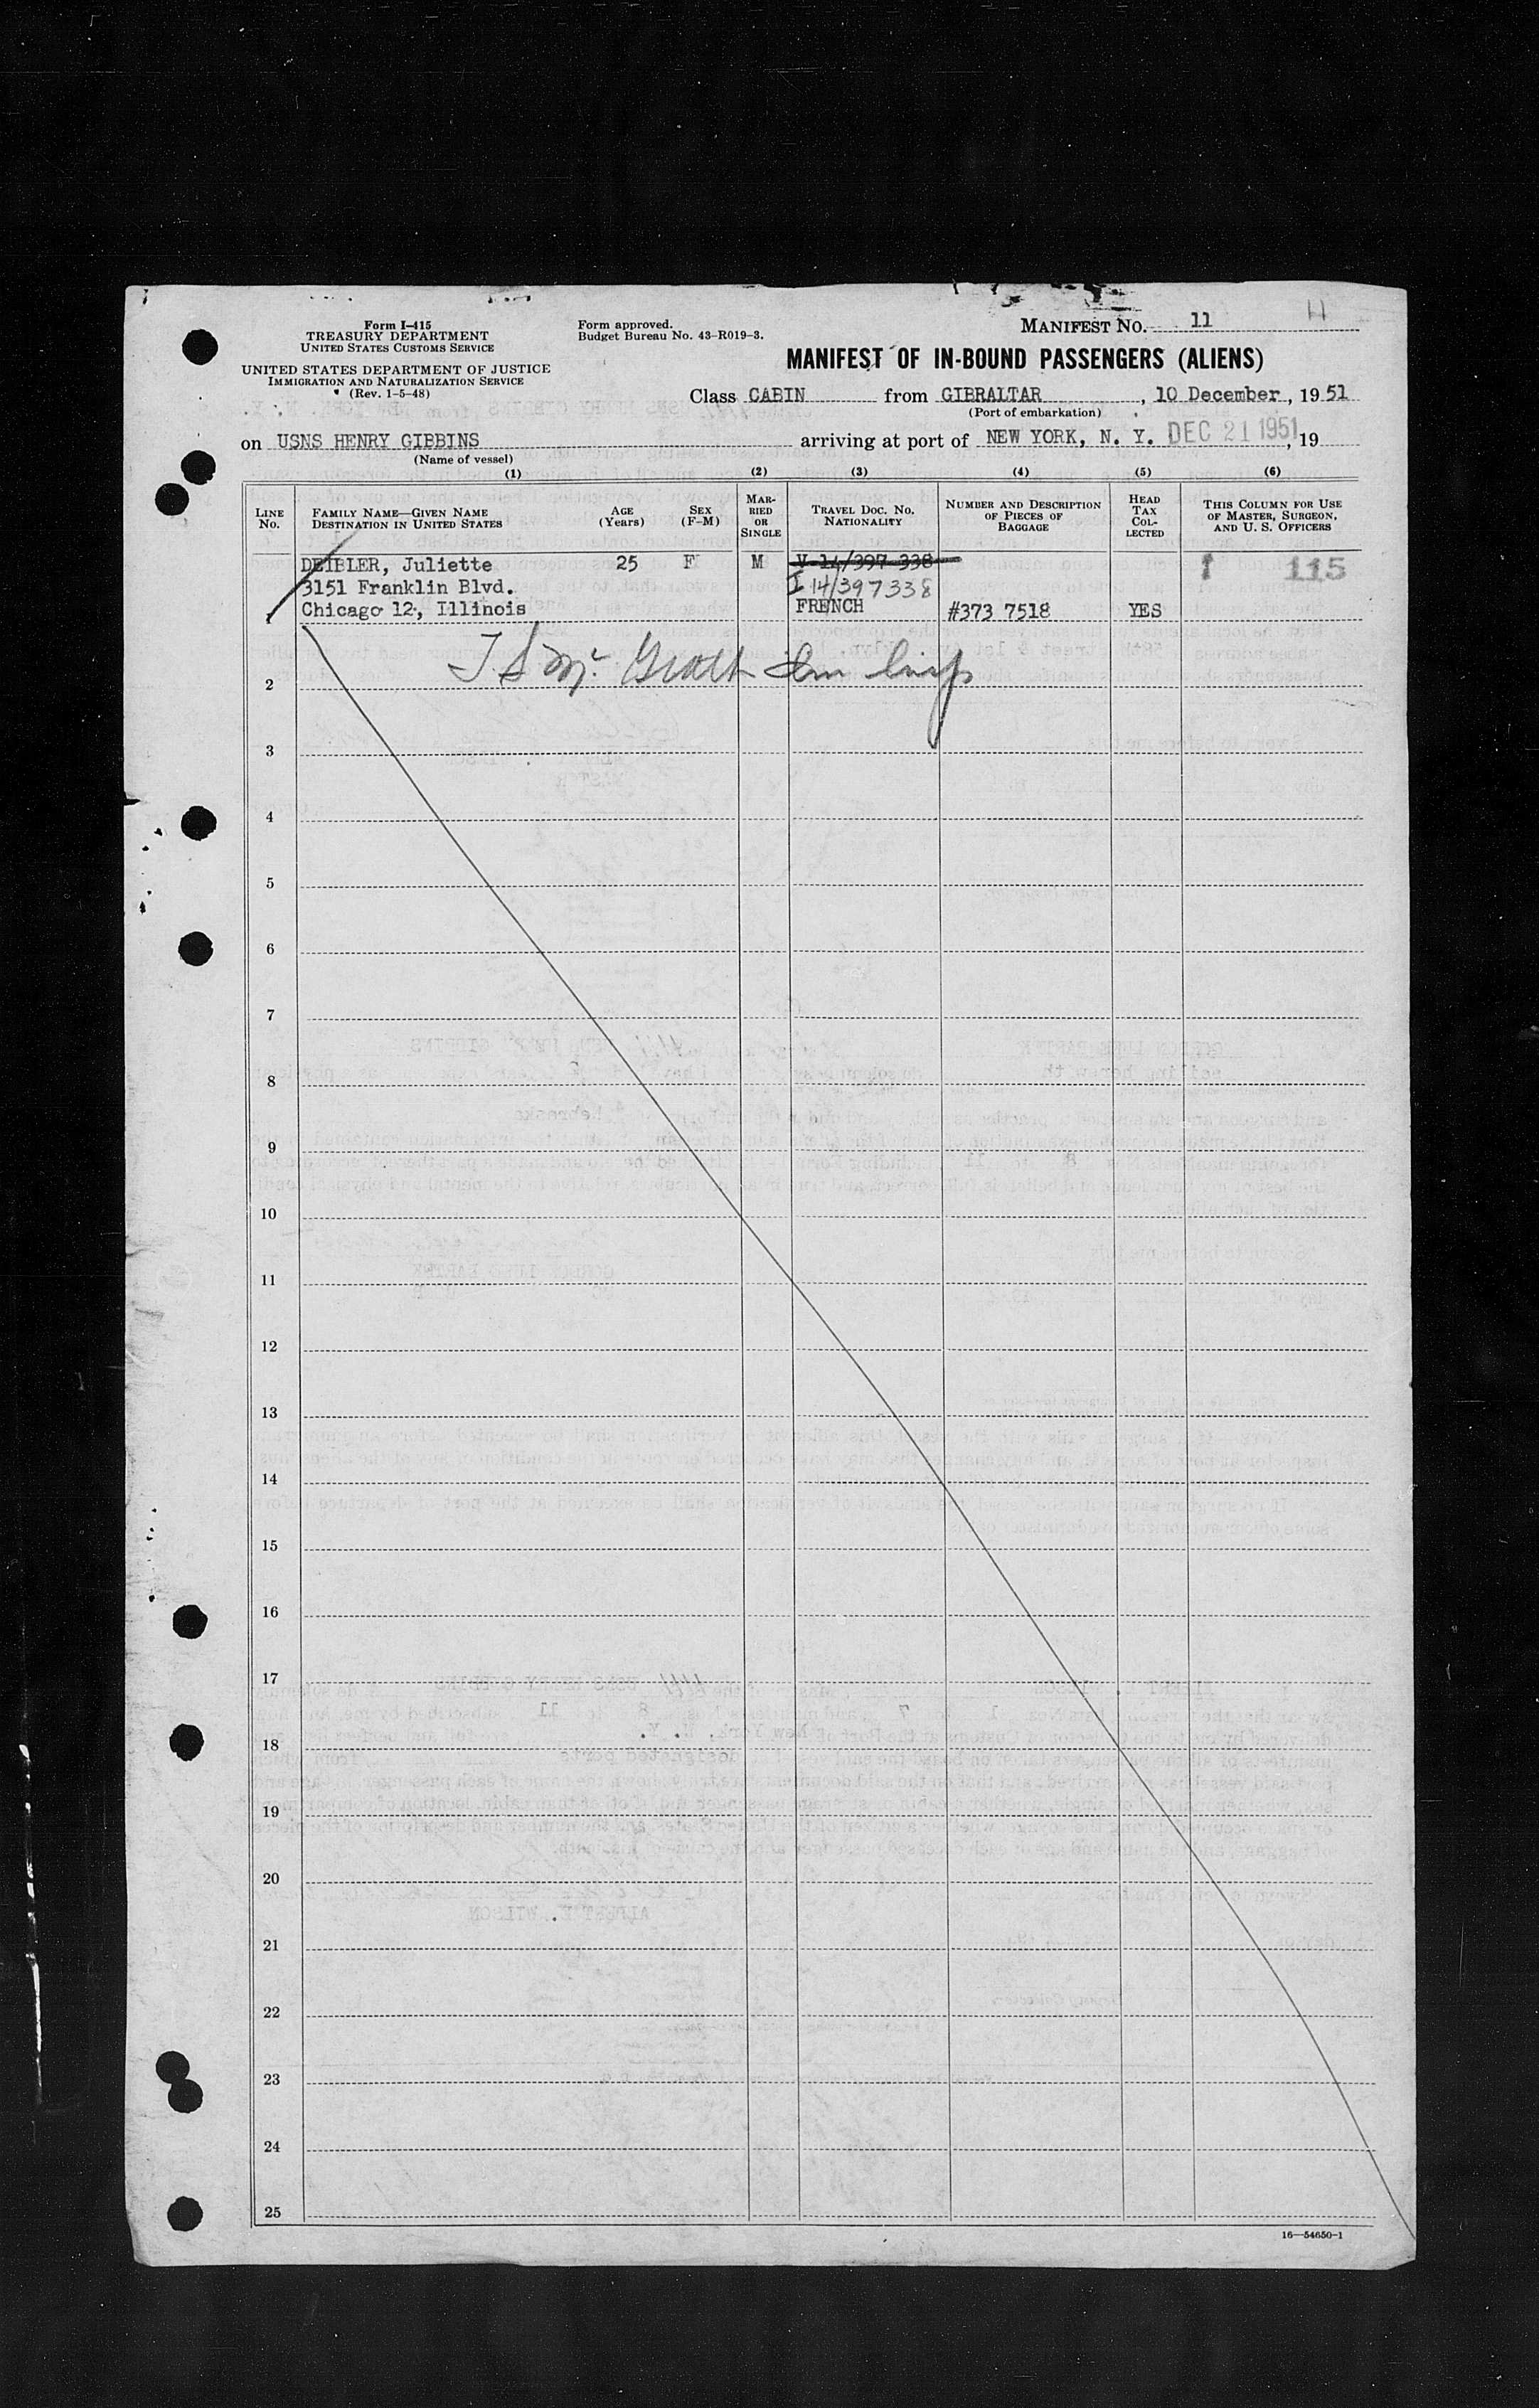 Form I-415
TREASURY DEPARTMENT
UNITED STATES CUSTOMS SERVICE
UNITED STATES DEPARTMENT OF JUSTICE
IMMIGRATION AND NATURALIZATION SERVICE
(Rev. 1-5-48)
Form approved.
Budget Bureau No. 43-R019-3.
MANIFEST NO. 11 11
MANIFEST OF IN-BOUND PASSENGERS (ALIENS)
Class CABIN from GIBRALTAR, 10 December, 1951
(Port of embarkation)
on USNS HENRY GIBBINS arriving at port of NEW YORK, N. Y. DEC 21 1951, 19
(Name of vessel)
(1) (2) (3) (4) (5) (6)
LINE No. FAMILY NAME—GIVEN NAME DESTINATION IN UNITED STATES AGE (Years) SEX (F-M) MARRIED OR SINGLE TRAVEL DOC. NO. NATIONALITY NUMBER AND DESCRIPTION OF PIECES OF BAGGAGE HEAD TAX COLLECTED THIS COLUMN FOR USE OF MASTER, SURGEON, AND U. S. OFFICERS
DEIBLER, Juliette 25 F M V-14/397 338 1 115
3151 Franklin Blvd. I 14/397338
1 Chicago 12, Illinois FRENCH #373 7518 YES
2
3
4
5
6
7
8
9
10
11
12
13
14
15
16
17
18
19
20
21
22
23
24
25
16—54650-1